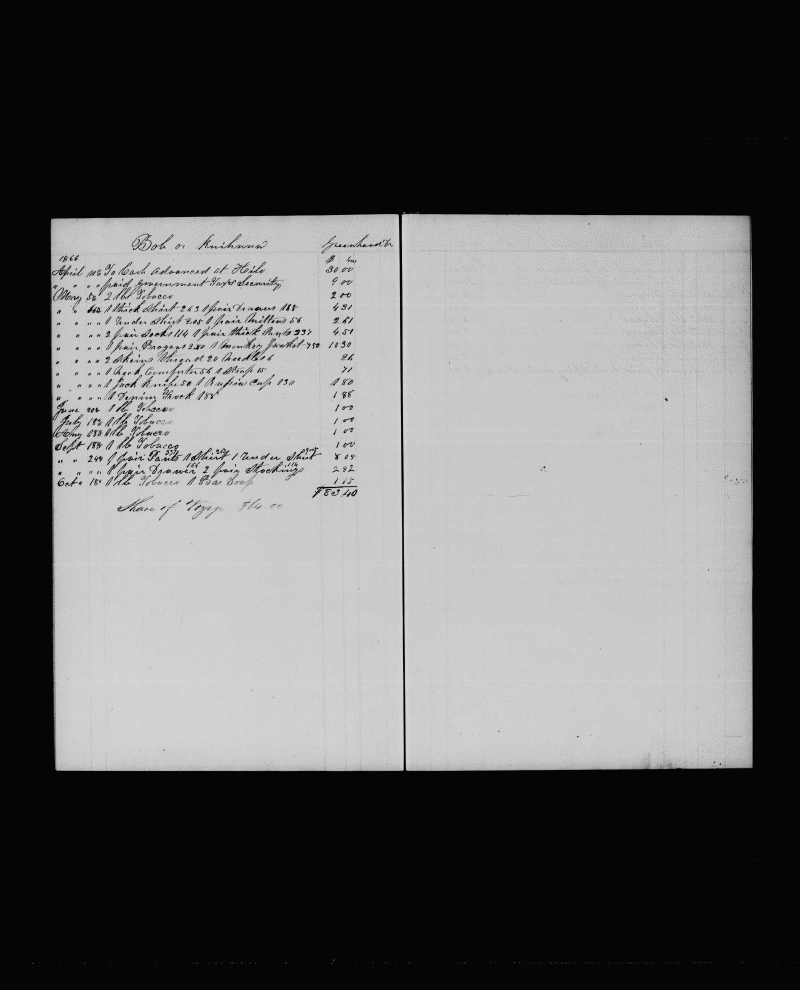 Bob or Kuihuua Greenhand Dr
1866 $ cts
April To Cash Advanced at Hilo 30 00
" " " " paid government Taxes Security 9 00
May 5th 2 lbs Tobacco 2 00
" " 1 thick Shirt 2 63 1 pair Drawers 188 4 51
" " " " 1 Under Shirt 2.05 1 pair Mittens 56 2 61
" " " " 2 pair Socks 114 1 pair thick Pants 337 4 51
" " " " 1 pair Brogans 2.80 1 Monkey Jacket 750 10 30
" " " " 2 Skeins thread 20 Needles 6 26
" " " " 1 Comforter 56 1 15 71
" " " " 1 Jack Knife 50 1 Russia Cap 130 1 80
" " " " 1 Denim Frock 188 1 88
June 1 lb Tobacco 1 00
July 18th 1 lb Tobacco 1 00
Aug 1 lb Tobacco 1 00
Sept 18th 1 lb Tobacco 1 00
" " 24th 1 pair Pants 1 Shirt 1 Under Shirt 8 09
" " " " 1 pair Drawers 168 2 pair Stockings 114 2 82
Oct 18th 1 lb Tobacco 1 Bar Soap 1 15
$ 83.40
Share of Voyge $64.00